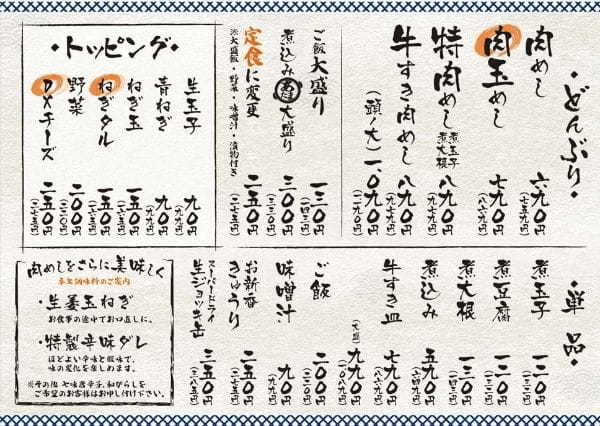 ・どんぶり・
肉めし 六九〇円
(七五九円)
肉玉めし 七九〇円
(八六九円)
特肉めし 煮玉子 煮大根 八九〇円
(九七九円)
牛すき肉めし 八九〇円
(九七九円)
(頭ノ大) 一、〇九〇円
(一、一九九円)
ご飯大盛り 一三〇円
(一四三円)
煮込みあたま大盛り 三〇〇円
(三三〇円)
定食に変更 二五〇円
(二七五円)
※大盛飯・野菜・味噌汁・漬物付き
・トッピング・
生玉子 九〇円
(九九円)
青ねぎ 九〇円
(九九円)
ねぎ玉 一五〇円
(一六五円)
ねぎタル 一五〇円
(一六五円)
野菜 二〇〇円
(二二〇円)
DXチーズ 二五〇円
(二七五円)
単品・
煮玉子 一三〇円
(一四三円)
煮豆腐 一三〇円
(一四三円)
煮大根 一三〇円
(一四三円)
煮込み 五九〇円
(六四九円)
牛すき皿 七九〇円
(八六九円)
(大盛) 九九〇円
(一、〇八九円)
ご飯 二〇〇円
(二二〇円)
味噌汁 九〇円
(九九円)
お新香
きゅうり 三五〇円
(三八五円)
スーパードライ
生ジョッキ缶 三五〇円
(三八五円)
肉めしをさらに美味しく
卓上調味料のご案内
・生姜玉ねぎ
お食事の途中でお口直しに。
・特製辛味ダレ
ほどよい辛味と酸味で、
味の変化を楽しめます。
※その他 七味唐辛子、和がらしを
ご希望のお客様はお申し付け下さい。